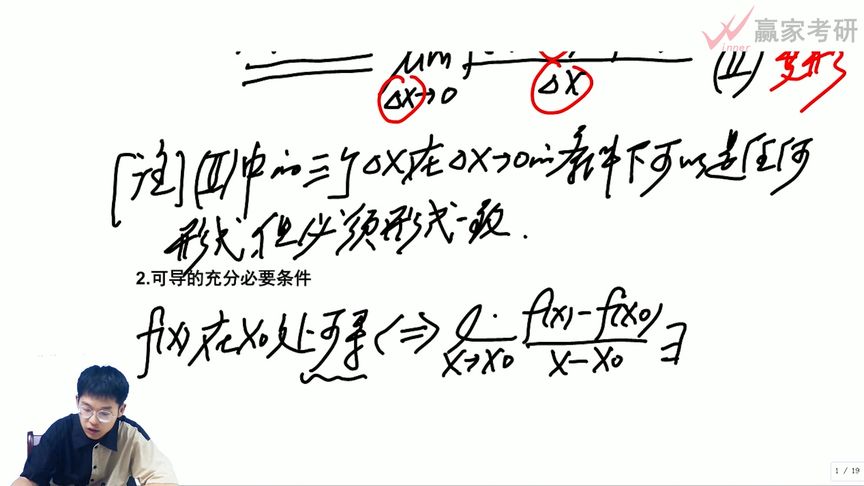 赢家考研
Winner
lim
Δx→0 Δx (II) 变形
[注] (II)中的三个Δx在Δx→0的条件下可以是任何
形式,但必须形式一致.
2.可导的充分必要条件
f(x)在x₀处可导<=> l. f(x)-f(x₀)
x→x₀ x-x₀ ∃
1 / 19